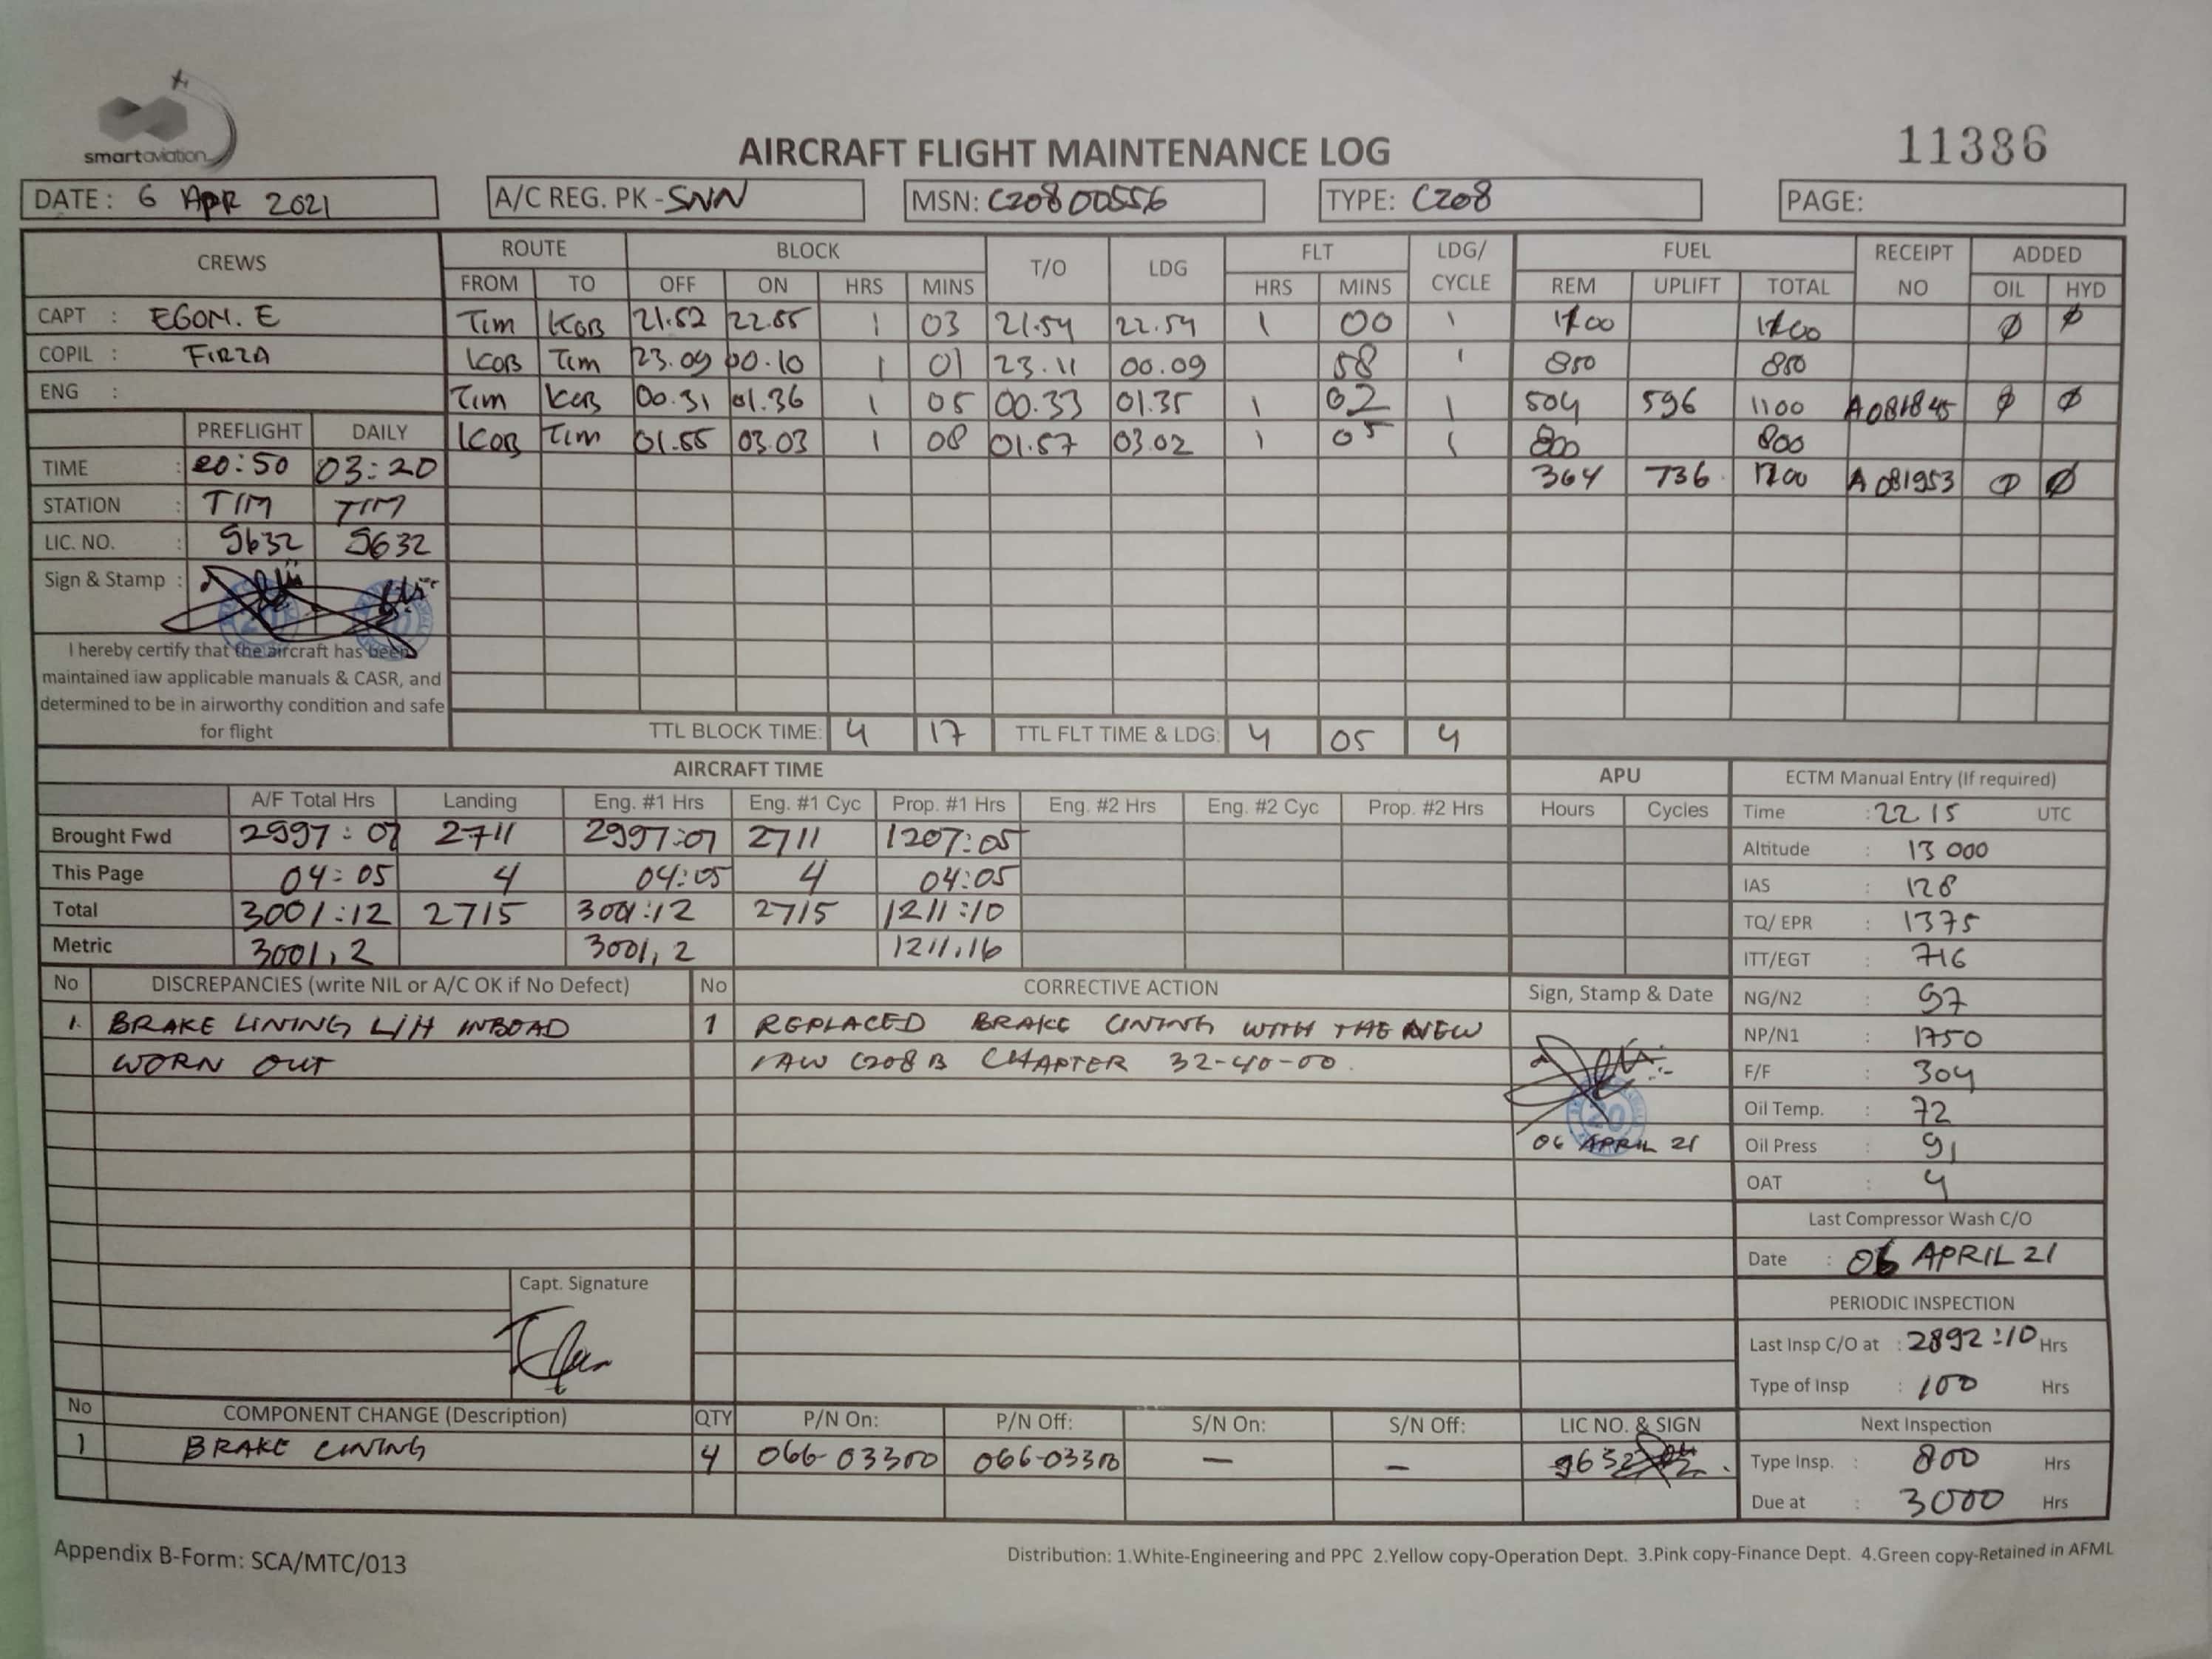 smartaviation
AIRCRAFT FLIGHT MAINTENANCE LOG
11386
DATE: 6 APR 2021 A/C REG. PK-SNN MSN: C20800556 TYPE: C208 PAGE:
CREWS ROUTE BLOCK T/O LDG FLT LDG/ FUEL RECEIPT ADDED
FROM TO OFF ON HRS MINS HRS MINS CYCLE REM UPLIFT TOTAL NO OIL HYD
CAPT : EGON. E Tim KOB 21.52 22.55 1 03 21.54 22.54 1 00 1 Ø Ø
COPIL : FIRZA KOB Tim 23.09 00.10 1 01 23.11 00.09 58 1 850 850
ENG : Tim KOB 00.31 01.36 1 05 00.33 01.35 1 02 1 504 596 1100 A081845 Ø Ø
PREFLIGHT DAILY KOB Tim 01.55 03.03 1 08 01.57 03.02 1 05 1 800 800
TIME : 20:50 03:20 364 736 A081953 Ø Ø
STATION : TIM TIM
LIC. NO. : 9632 9632
Sign & Stamp :
I hereby certify that the aircraft has been
maintained iaw applicable manuals & CASR, and
determined to be in airworthy condition and safe
for flight
TTL BLOCK TIME: 4 17 TTL FLT TIME & LDG: 4 05 4
AIRCRAFT TIME APU ECTM Manual Entry (If required)
A/F Total Hrs Landing Eng. #1 Hrs Eng. #1 Cyc Prop. #1 Hrs Eng. #2 Hrs Eng. #2 Cyc Prop. #2 Hrs Hours Cycles Time : 22.15 UTC
Brought Fwd 2997:07 2711 2997:07 2711 1207:05 Altitude : 13 000
This Page 04:05 4 04:05 4 04:05 IAS : 128
Total 3001:12 2715 3001:12 2715 1211:10 TQ/ EPR : 1375
Metric 3001,2 3001,2 1211,16 ITT/EGT : 716
No DISCREPANCIES (write NIL or A/C OK if No Defect) No CORRECTIVE ACTION Sign, Stamp & Date NG/N2 : 97
1. BRAKE LINING L/H INBOAD 1 REPLACED BRAKE LINING WITH THE NEW NP/N1 : 1750
WORN OUT IAW C208B CHAPTER 32-40-00. F/F : 304
20
Oil Temp. : 72
06 APRIL 21 Oil Press : 91
OAT : 4
Last Compressor Wash C/O
Date : 06 APRIL 21
Capt. Signature
PERIODIC INSPECTION
Last Insp C/O at : 2892:10 Hrs
Type of Insp : 100 Hrs
No COMPONENT CHANGE (Description) QTY P/N On: P/N Off: S/N On: S/N Off: LIC NO. & SIGN Next Inspection
1 BRAKE LINING 4 066-03300 066-03300 — — 9632 Type Insp. : 800 Hrs
Due at : 3000 Hrs
Appendix B-Form: SCA/MTC/013
Distribution: 1.White-Engineering and PPC 2.Yellow copy-Operation Dept. 3.Pink copy-Finance Dept. 4.Green copy-Retained in AFML